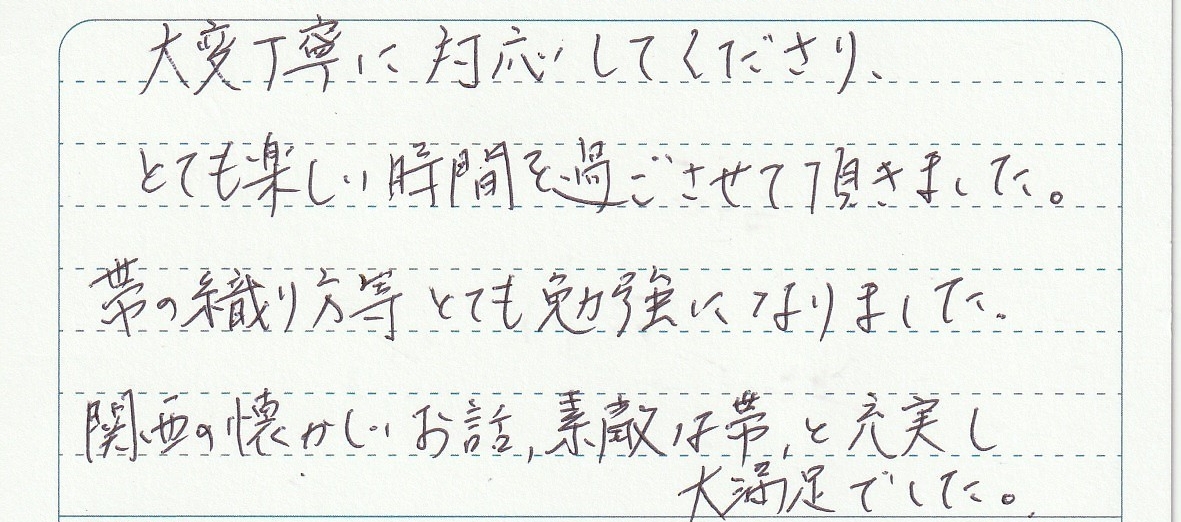 大変丁寧に対応してくださり、
とても楽しい時間を過ごさせて頂きました。
帯の織り方等とても勉強になりました。
関西の懐かしいお話,素敵な帯,と充実し
大満足でした。